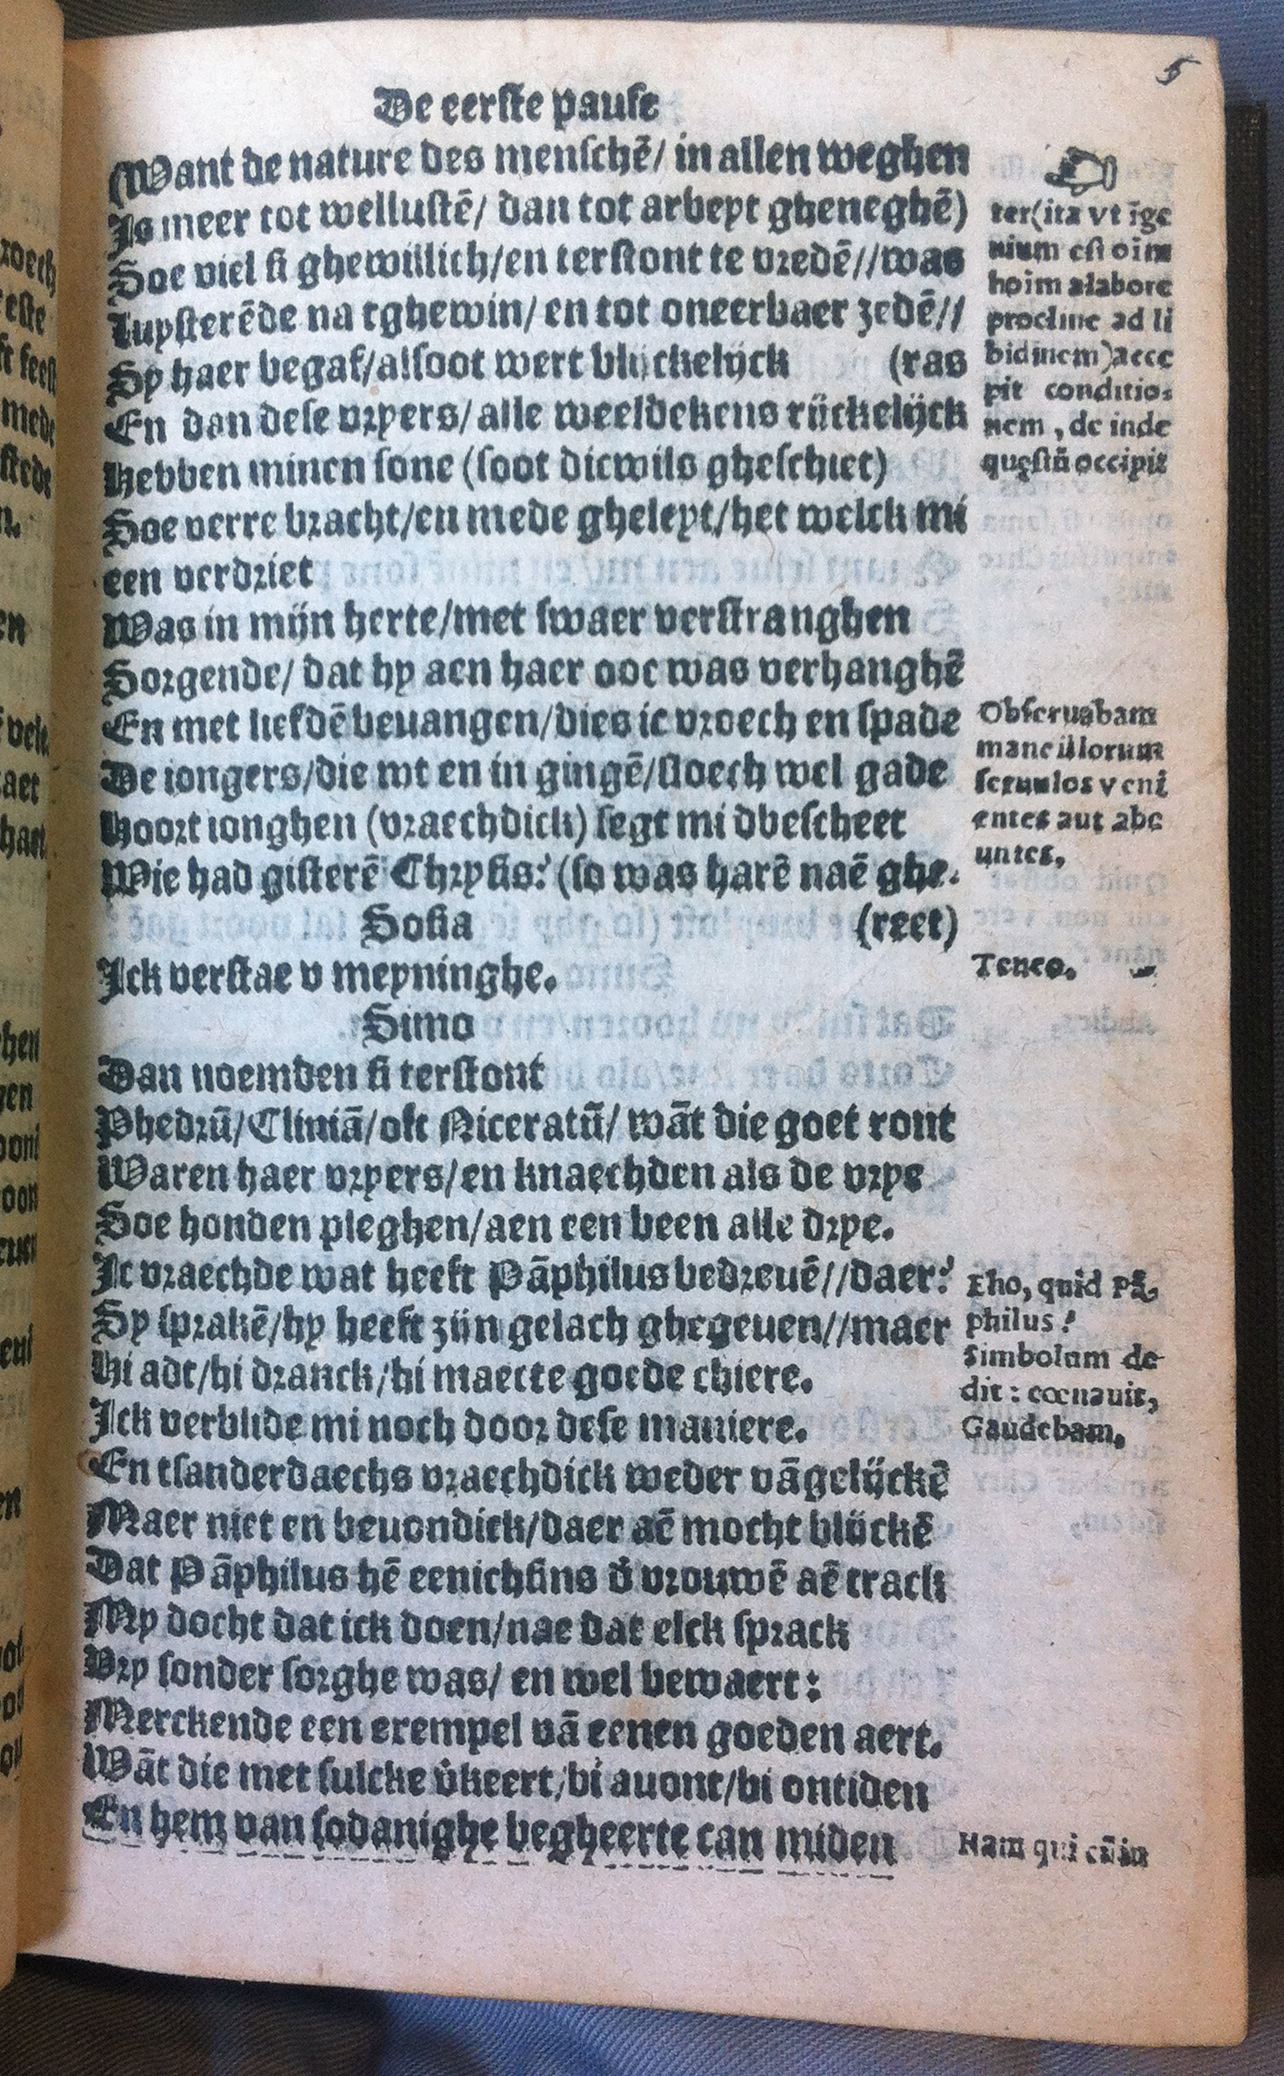 5
De eerste pause
(Want de nature des menschē/ in allen weghen
Is meer tot wellustē/ dan tot arbeyt gheneghē)
Soe viel si ghewillich/en terstont te vredē//was
Luysterēde na tghewin/ en tot oneerbaer zedē//
Sy haer begaf/alsoot wert blijckelijck (ras
En dan dese vryers/alle weeldekens rijckelijck
Hebben minen sone (soot dicwils gheschiet)
Soe verre bracht/en mede gheleyt/het welck mi
een verdriet
Was in mijn herte/met swaer verstranghen
Sorgende/ dat hy aen haer ooc was verhanghē
En met liefdē bevangen/dies ic vroech en spade
De iongers/die wt en in gingē/sloech wel gade
Hoort ionghen (vraechdick) segt mi dbescheet
Wie had gisterē Chrysis? (so was harē naē ghe-
Sosia (reet)
Ick verstae v meyninghe.
Simo
Dan noemden si terstont
Phedrū/Cliniā/oft Niceratū/ wāt die goet ront
Waren haer vryers/en knaechden als de vrye
Soe honden pleghen/aen een been alle drye.
Ic vraechde wat heeft Pāphilus bedreuē//daer?
Sy sprakē/hy heeft zijn gelach ghegeuen//maer
Hi adt/hi dranck/hi maecte goede chiere.
Ick verblide mi noch door dese maniere.
En tsanderdaechs vraechdick weder vāgelijckē
Maer niet en beuondick/daer aē mocht blijckē
Dat Pāphilus hē eenichsins d̄ vrouwē aē track
My docht dat ick doen/nae dat elck sprack
Vry sonder sorghe was/ en wel bewaert:
Merckende een exempel vā eenen goeden aert.
Wāt die met sulcke v̄keert/bi auont/bi ontiden
En hem van sodanighe begheerte can miden
☞
ter(ita vt īge
nium est oīm
hoim a labore
procliue ad li
bidinem)acce
pit conditio-
nem, de inde
quęstū occipit
Obseruabam
mane illorum
seruulos veni
entes aut abe
untes,
Teneo.
Eho, quid Pā
philus?
Simbolum de
dit: cœnauit,
Gaudebam,
Nam qui cū in